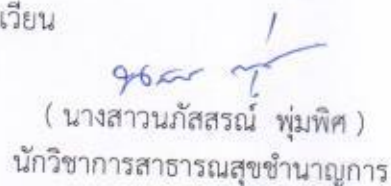 เวียน
( นางสาวนภัสสรณ์ พุ่มพิศ )
นักวิชาการสาธารณสุขชำนาญการ